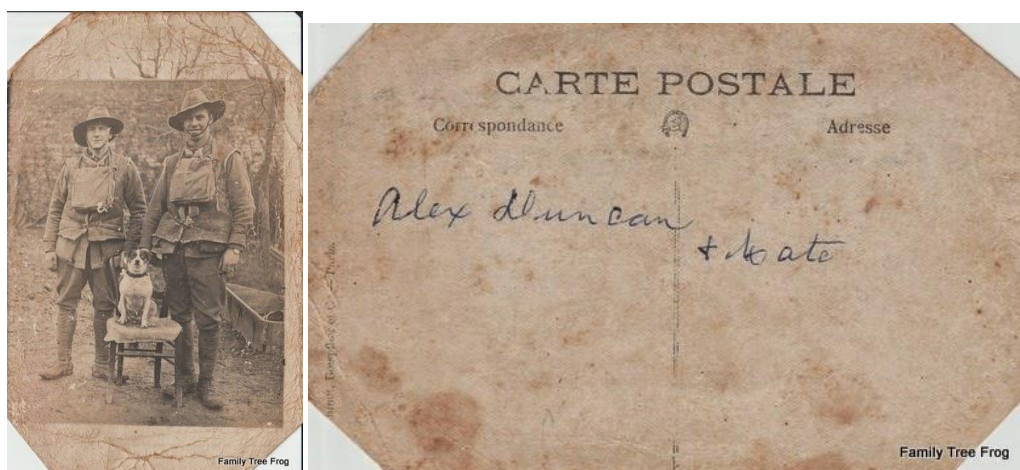 Family Tree Frog
CARTE POSTALE
Correspondance
Adresse
Alex Duncan
+ Mate
Family Tree Frog